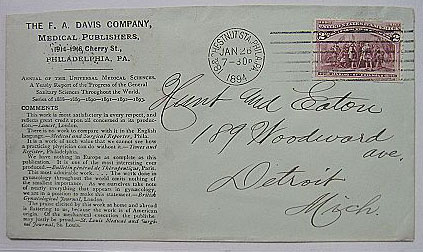 THE F. A. DAVIS COMPANY,
MEDICAL PUBLISHERS,
1914-1916 Cherry St.,
PHILADELPHIA, PA.
ANNUAL OF THE UNIVERSAL MEDICAL SCIENCES.
A Yearly Report of the Progress of the General
Sanitary Sciences Throughout the World.
Series of 1888—1889—1890—1891—1892—1893.
COMMENTS
This work is most satisfactory in every respect, and
reflects great credit upon all concerned in its produc-
tion.—Lancet, London.
There is no work to compare with it in the English
language.—Medical and Surgical Reporter, Phila.
It is a work of such value that we cannot see how
a practising physician can do without it.—Times and
Register, Philadelphia.
We have nothing in Europe as complete as this
publication. It is one of the most interesting ever
produced.—Bulletin général de Thérapeutique, Paris.
This most admirable work. . . . The work done in
gynæcology throughout the world omits nothing of
the smallest importance. As we ourselves take note
of nearly everything that appears in gynæcology,
we are in a position to make this statement.—British
Gynæcological Journal, London.
The praise elicited by this work at home and abroad
is flattering to us, because the work is of American
origin. Of the mechanical execution the publisher
may justly be proud.—St. Louis Medical and Surgi-
cal Journal, St. Louis.
CHESTNUT STS. PHILADA.
JAN 26
7-30P
1894
Hunt and Eaton
189 Woodward
ave.
Detroit
Mich.